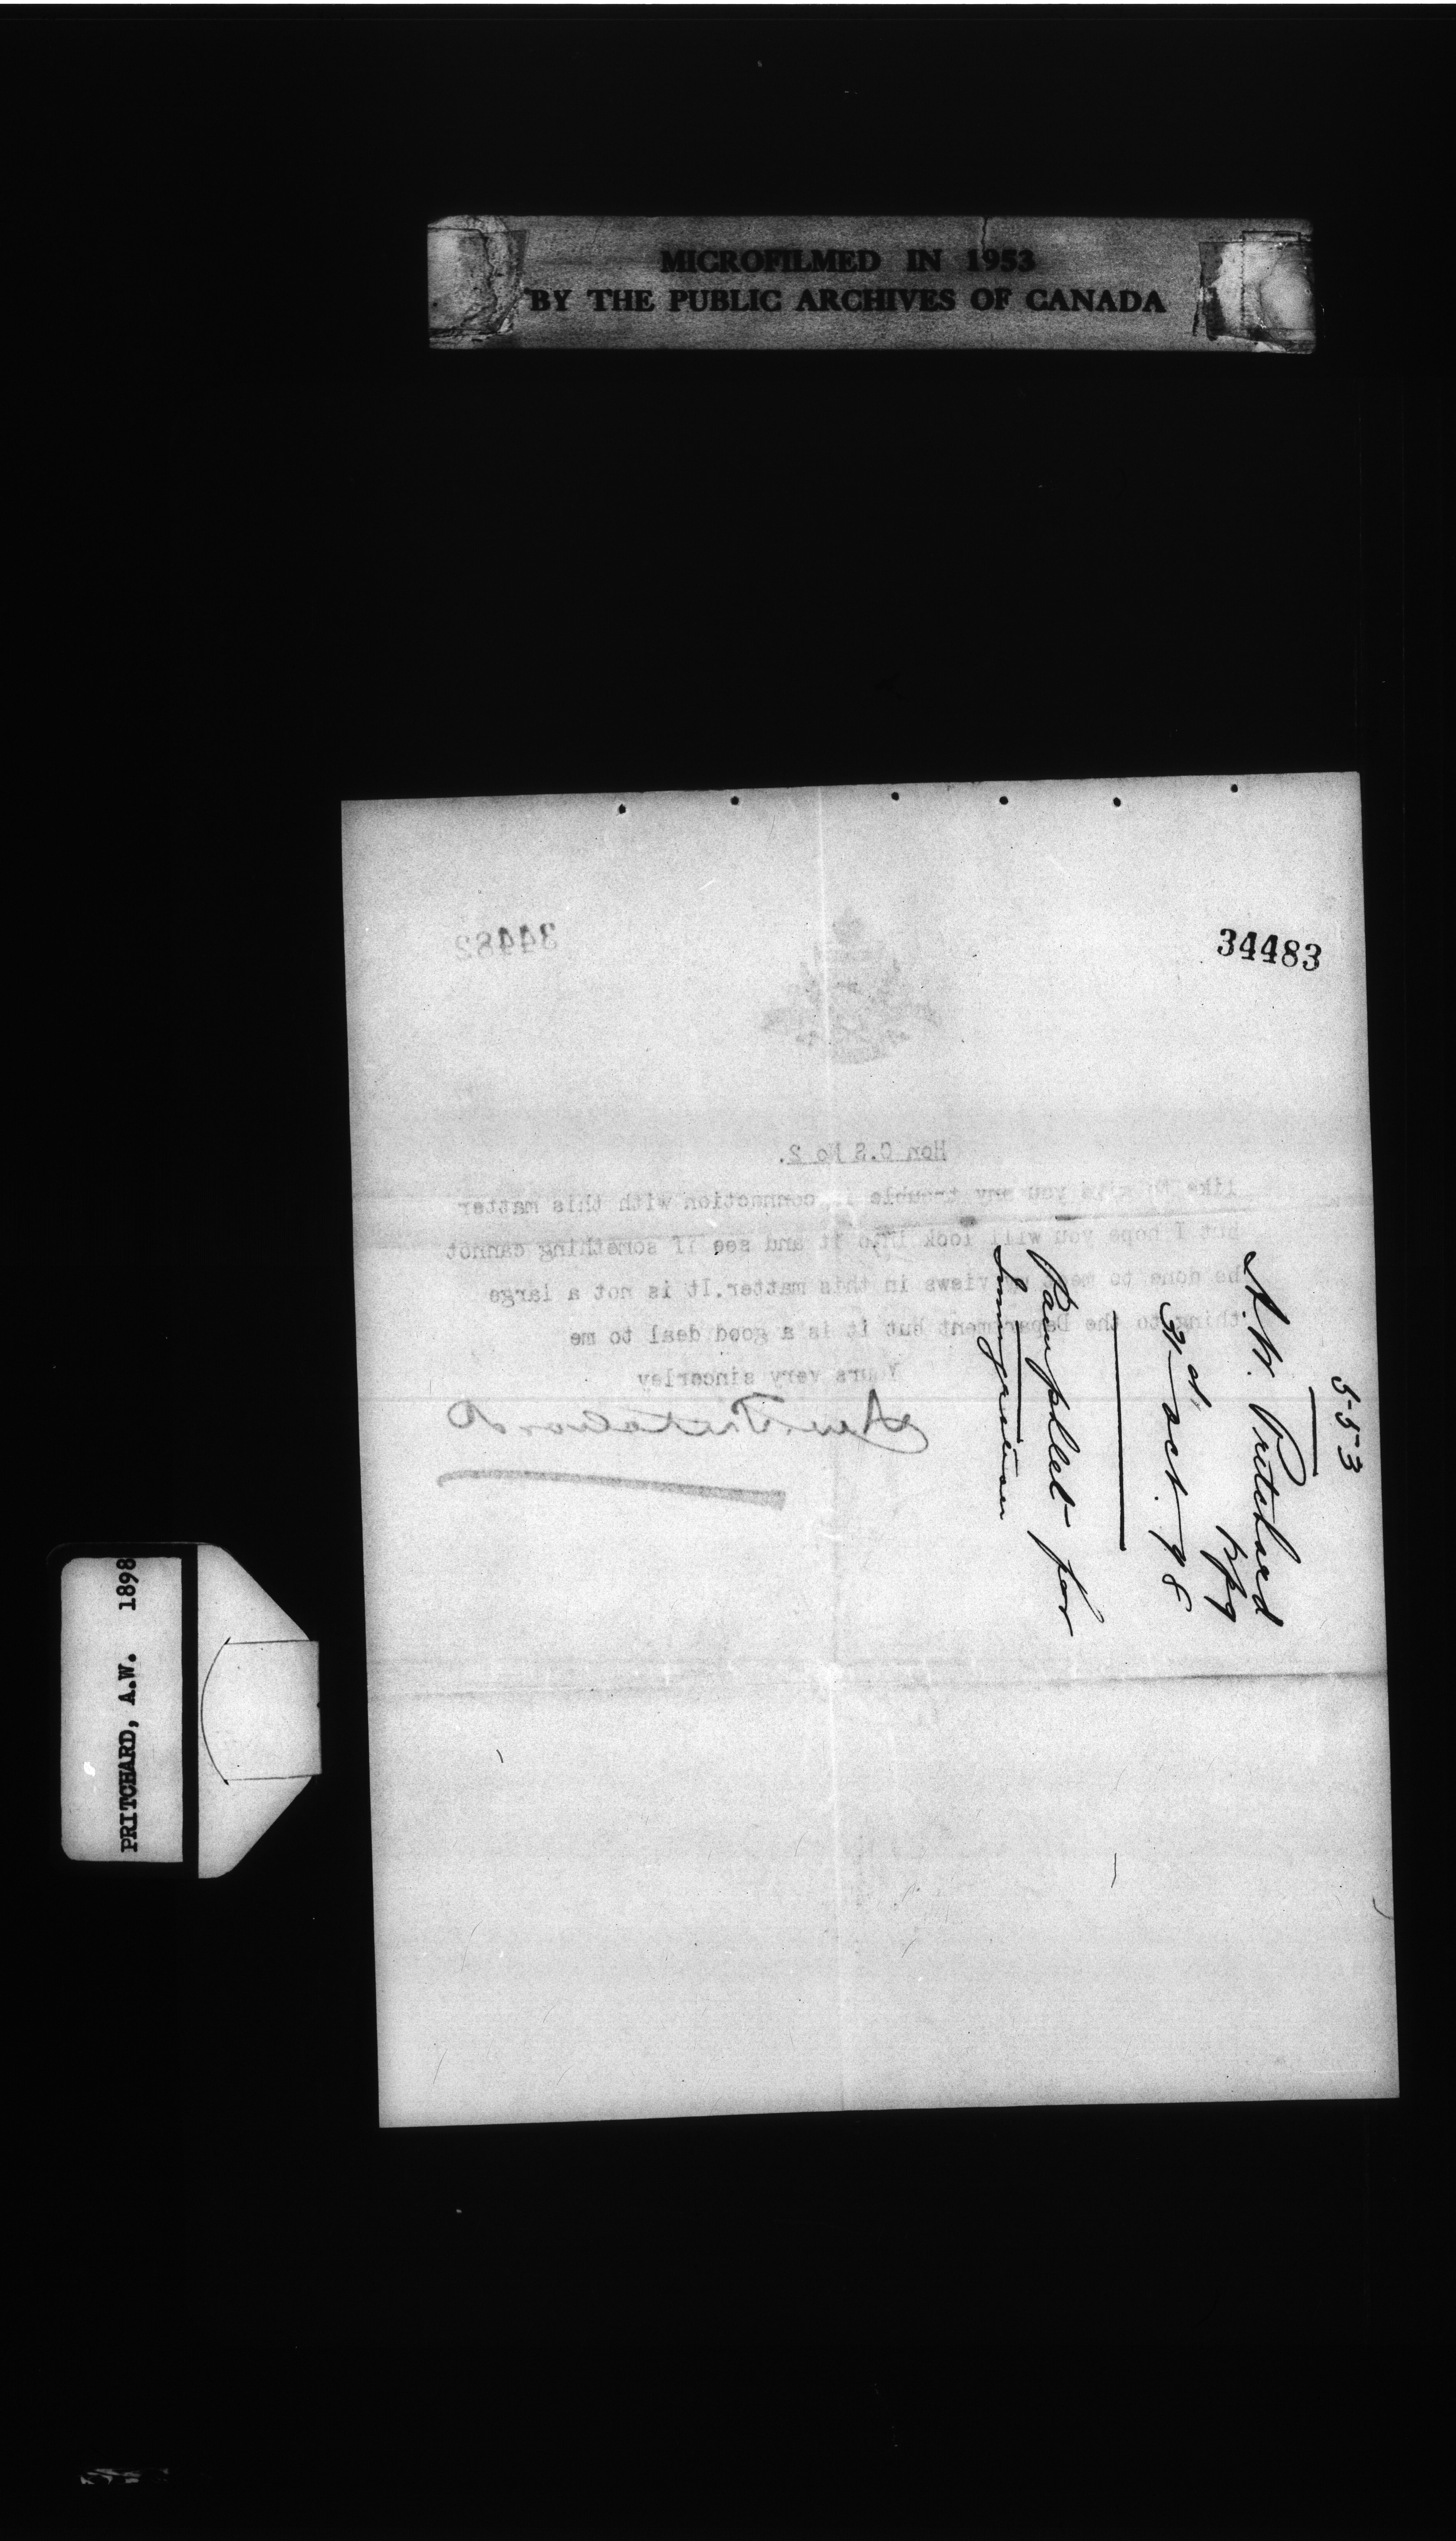 MICROFILMED IN 1953
BY THE PUBLIC ARCHIVES OF CANADA
34483
34482
Hon C.S No 2.
like to give you any trouble in connection with this matter
but I hope you will look into it and see if something cannot
be done to meet my views in this matter.It is not a large
thing to the Department but it is a good deal to me
Yours very sincerley
A.W. Pritchard
553
A. W. Pritchard
Wpg
3rd Oct. 98
Pamphlet for
Immigration
PRITCHARD, A.W. 1898